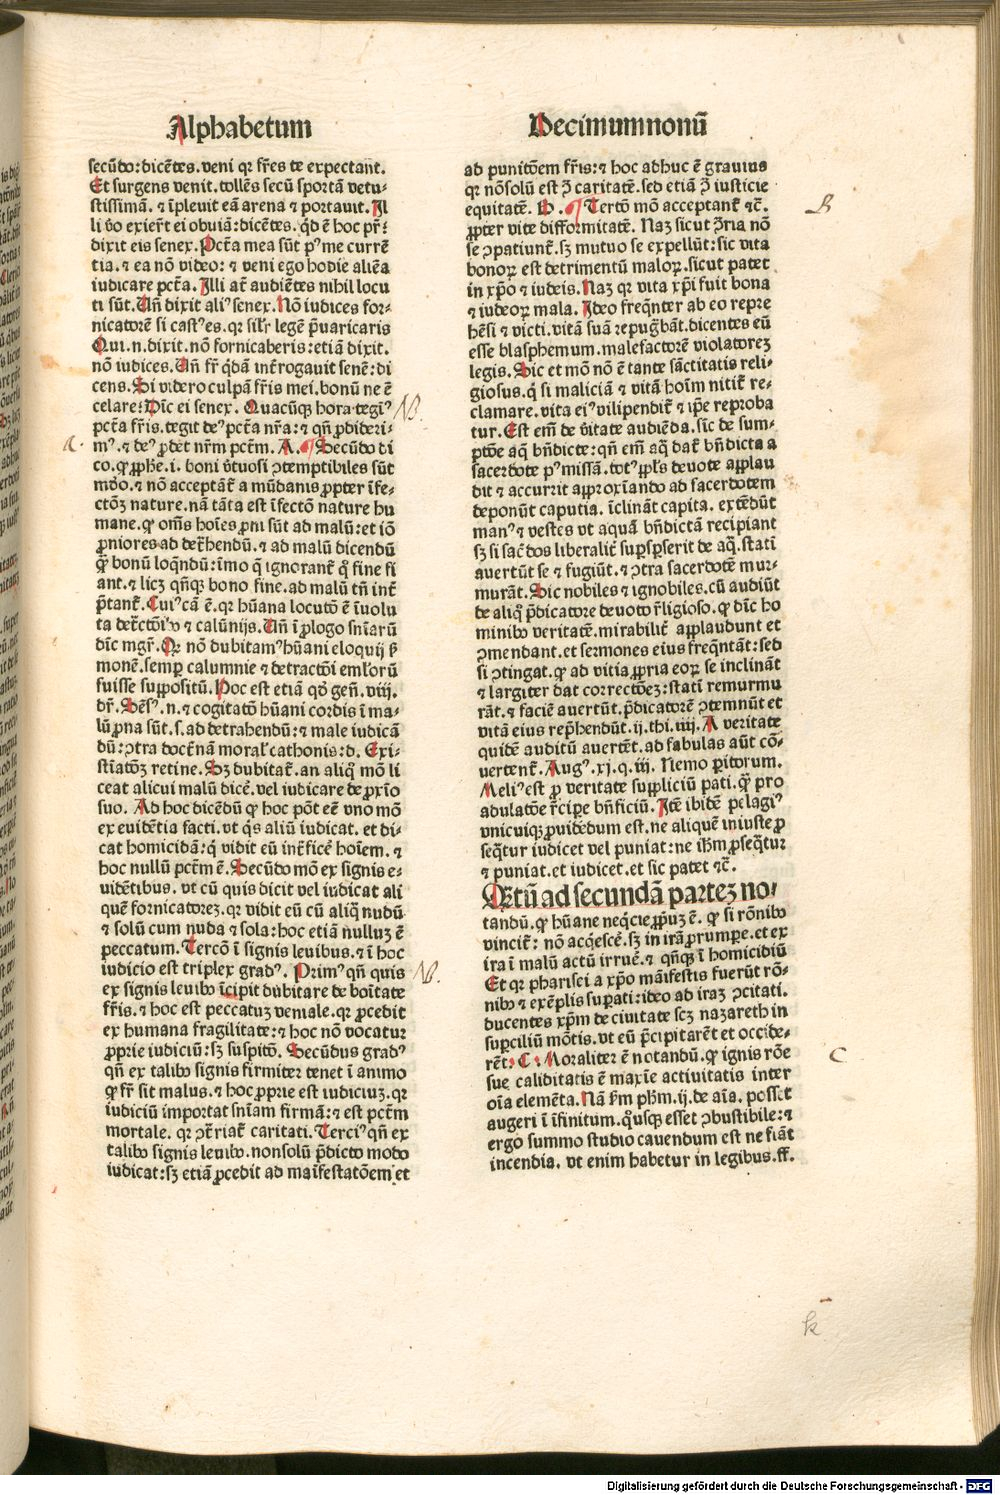 Alphabetum
secūdo: dicētes. veni qr fr̄es te expectant.
Et surgens venit. tollēs secū sportā vetu-
stissimā. ⁊ īplevit eā arena ⁊ portavit. Il
li v̄o exier̄t ei obviā: dicētes. qd ē hoc pr̄:
dixit eis senex. Pctā mea sūt pꝰ me currē
tia. ⁊ ea nō video: ⁊ veni ego hodie aliēa
iudicare pctā. Illi at̄ audiētes nihil locu
ti sūt. Uñ dixit aliꝰ senex. Nō iudices for-
nicatorē si castꝰ es. qr sil̄r legē p̄uaricaris
Qui. n. dixit. nō fornicaberis: etiā dixit.
nō iudices. Uñ fr̄ qdā int̄rogauit senē: di
cens. Si videro culpā fr̄is mei. bonū ne ē
celare: Dīc ei senex. Quacūqꝫ hora tegiꝰ
pctā fr̄is. tegit deꝰ pctā nr̄a: ⁊ qñ ꝓdideri-
mꝰ. ⁊ deꝰ ꝓdet nr̄m pctm̄. A. ¶ Secūdo di
co. ꝙ ꝓphe. i. boni v̄tuosi ꝯtemptibiles sūt
mōo. ⁊ nō acceptāt̄ a mūdanis ꝓpter īfe-
ctōꝫ nature. nā tāta est īfectō nature hu
mane. ꝙ om̄s hoīes ꝓni sūt ad malū: et iō
ꝓniores ad det̄hendū. ⁊ ad malū dicendū
q̄ bonū loq̄ndū: īmo q̄ ignorant̄ qͦ fine fi
ant. ⁊ licꝫ qñqꝫ bono fine. ad malū tn̄ int̄
p̄tant̄. Cuiꝰ cā ē. qr hūana locutō ē īuolu
ta det̄ctōībꝰ ⁊ calūnijs. Uñ ī ꝓlogo sn̄iarū
dīc mgr̄. Qr nō dubitamꝰ hūani eloquij ẜ
monē. semꝑ calumnie ⁊ detractōi emlorū
fuisse suppositū. Hoc est etiā qd̄ gen̄. viij.
dr̄. Sēsꝰ. n. ⁊ cogitatō hūani cordis ī ma-
lū ꝓna sūt. s. ad detrahendū: ⁊ male iudicā
dū: ꝯtra doctr̄nā moral̄ cathonis: d. Exi-
stīatōꝫ retine. Sꝫ dubitat̄. an aliqͦ mō li
ceat alicui malū dicē. vel iudicare de ꝓxīo
suo. Ad hoc dicēdū ꝙ hoc pōt eē vno mō
ex euidētia facti. vt qͥs aliū iudicat. et di-
cat homicidā: qͥ vidit eū int̄ficē hoīem. ⁊
hoc nullū pctm̄ ē. Secūdo mō ex signis e-
vidētibus. vt cū quis dicit vel iudicat ali
quē fornicatorē. qr vidit eū cū aliq̄ nudū
⁊ solū cum nuda ⁊ sola: hoc etiā nulluꝫ ē
peccatum. Tercō ī signis leuibus. ⁊ ī hoc
iudicio est triplex gradꝰ. Primꝰ qñ quis
ex signis leuibꝰ īcipit dubitare de boītate
fr̄is. ⁊ hoc est peccatuꝫ veniale. qr ꝓcedit
ex humana fragilitate: ⁊ hoc nō vocatur
ꝓprie iudiciū: sꝫ suspitō. Secūdus gradꝰ
qñ ex talibꝰ signis firmiter tenet ī animo
ꝙ fr̄ sit malus. ⁊ hoc ꝓprie est iudiciuꝫ. qr
iudiciū importat sn̄iam firmā: ⁊ est pctm̄
mortale. qr ꝯt̄riat̄ caritati. Terciꝰ qñ ex
talibꝰ signis leuibꝰ. nonsolū p̄dicto modo
iudicat: sꝫ etiā ꝓcedit ad maīfestatōem et
A.
NB.
NB.
Decimumnonū
ad punitōem fr̄is: ⁊ hoc adhuc ē grauius
qr nōsolū est ꝯ̄ caritatē. sed etiā ꝯ̄ iusticie
equitatē. B. ¶ Tertō mō acceptant̄ ⁊c̄.
ꝓpter vite difformitatē. Naꝫ sicut ꝯ̄ria nō
se ꝯpatiunt̄. sꝫ mutuo se expellūt: sic vita
bonoꝝ est detrimentū maloꝝ. sicut patet
in xp̄o ⁊ iudeis. Naꝫ qr vita xp̄i fuit bona
⁊ iudeoꝝ mala. Ideo freqn̄ter ab eo repre
hēsi ⁊ victi. vitā suā repug̃bāt. dicentes eū
esse blasphemum. malefactorē violatoreꝫ
legis. Sic et mō nō ē tante sāctitatis reli-
giosus. qͥ si maliciā ⁊ vitā hoīm nitit̄ re-
clamare. vita eiꝰ vilipendit̄ ⁊ ip̄e reproba
tur. Est em̄ de v̄itate audiēda. sīc de sum-
ptōe aq̄ bn̄dicte: qñ em̄ aq̄ dat̄ bn̄dicta a
sacerdote pꝰ missā. totꝰ ppl̄s deuote applau
dit ⁊ accurrit approxīando ad sacerdotem
deponūt caputia. īclināt capita. extēdūt
manꝰ ⁊ vestes vt aquā bn̄dictā recipiant
sꝫ si sac̄dos liberalit̄ suꝑsꝑserit de aq̄. statī
auertūt se ⁊ fugiūt. ⁊ ꝯtra sacerdotē mur-
murāt. Sic nobiles ⁊ ignobiles. cū audiūt
de aliq̄ p̄dicatore deuoto r̄ligioso. ꝙ dīc ho
minibꝰ veritatē. mirabilit̄ applaudunt et
ꝯmendant. et sermones eius freqn̄tāt: sed
si ꝯtingat. ꝙ ad vitia ꝓpria eoꝝ se inclināt
⁊ largiter dat correctōeꝫ: statī remurmu
rāt. ⁊ faciē auertūt. p̄dicatorē ꝯtemnūt et
vitā eius rep̄hendūt. ij. thi. iiij. A veritate
quidē auditū auertēt. ad fabulas aūt cō-
uertent̄. Augꝰ. xj. q. iij. Nemo ꝑitorum.
Meliꝰ est ꝓ veritate suppliciū pati. q̄ pro
adulatōe r̄ciꝑe bn̄ficiū. Itē ibidē pelagiꝰ
vnicuiqꝫ ꝓuidēdum est. ne aliquē iniuste ꝓ
seq̄tur iudicet vel puniat: ne ih̄m ꝓseq̄tur
⁊ puniat. et iudicet. et sic patet ⁊c̄.
Qētū ad secundā parteꝫ no-
tandū. ꝙ hūane neq̄cie ꝓpuꝫ ē. ꝙ si rōnibꝰ
vincit̄: nō acq̄escē. sꝫ in irā ꝓrumpe. et ex
ira ī malū actū irruē. ⁊ qñqꝫ ī homicidiū
Et qr pharisei a xp̄o māifestis fuerūt rō-
nibꝰ ⁊ exēplis suꝑati: ideo ad iraꝫ ꝯcitati.
ducentes xp̄m de ciuitate scꝫ nazareth in
suꝑciliū mōtis. vt eū p̄cipitarēt et occide-
rēt: C: Moraliter ē notandū. ꝙ ignis rōe
sue caliditatis ē maxīe actiuitatis inter
oīa elemēta. Nā km̄ ph̄m. ij. de aīa. posset
augeri ī īfinitum. qͦusqꝫ esset ꝯbustibile: ⁊
ergo summo studio cauendum est ne fiāt
incendia. vt enim habetur in legibus. ff.
B
C
k
Digitalisierung gefördert durch die Deutsche Forschungsgemeinschaft - DFG